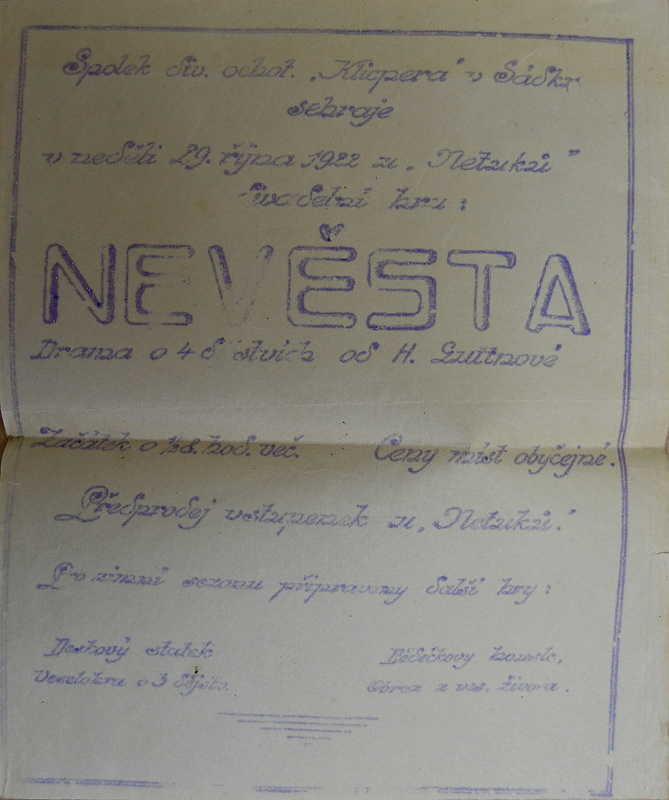 Spolek div. ochot. „Klicpera" v Sádkr
sehraje
v neděli 29. října 1922 u „Netuků"
divadelní hru:
NEVĚSTA
Drama o 4 dějstvích od H.
Začátek o ½8. hod. več. Ceny míst obyčejné.
Předprodej vstupenek u „Netuků."
Pro zimní sezonu připraveny další hry:
statek Dědečkovy housle.
Veselohra o 3 dějstv. Obraz z ves. života.